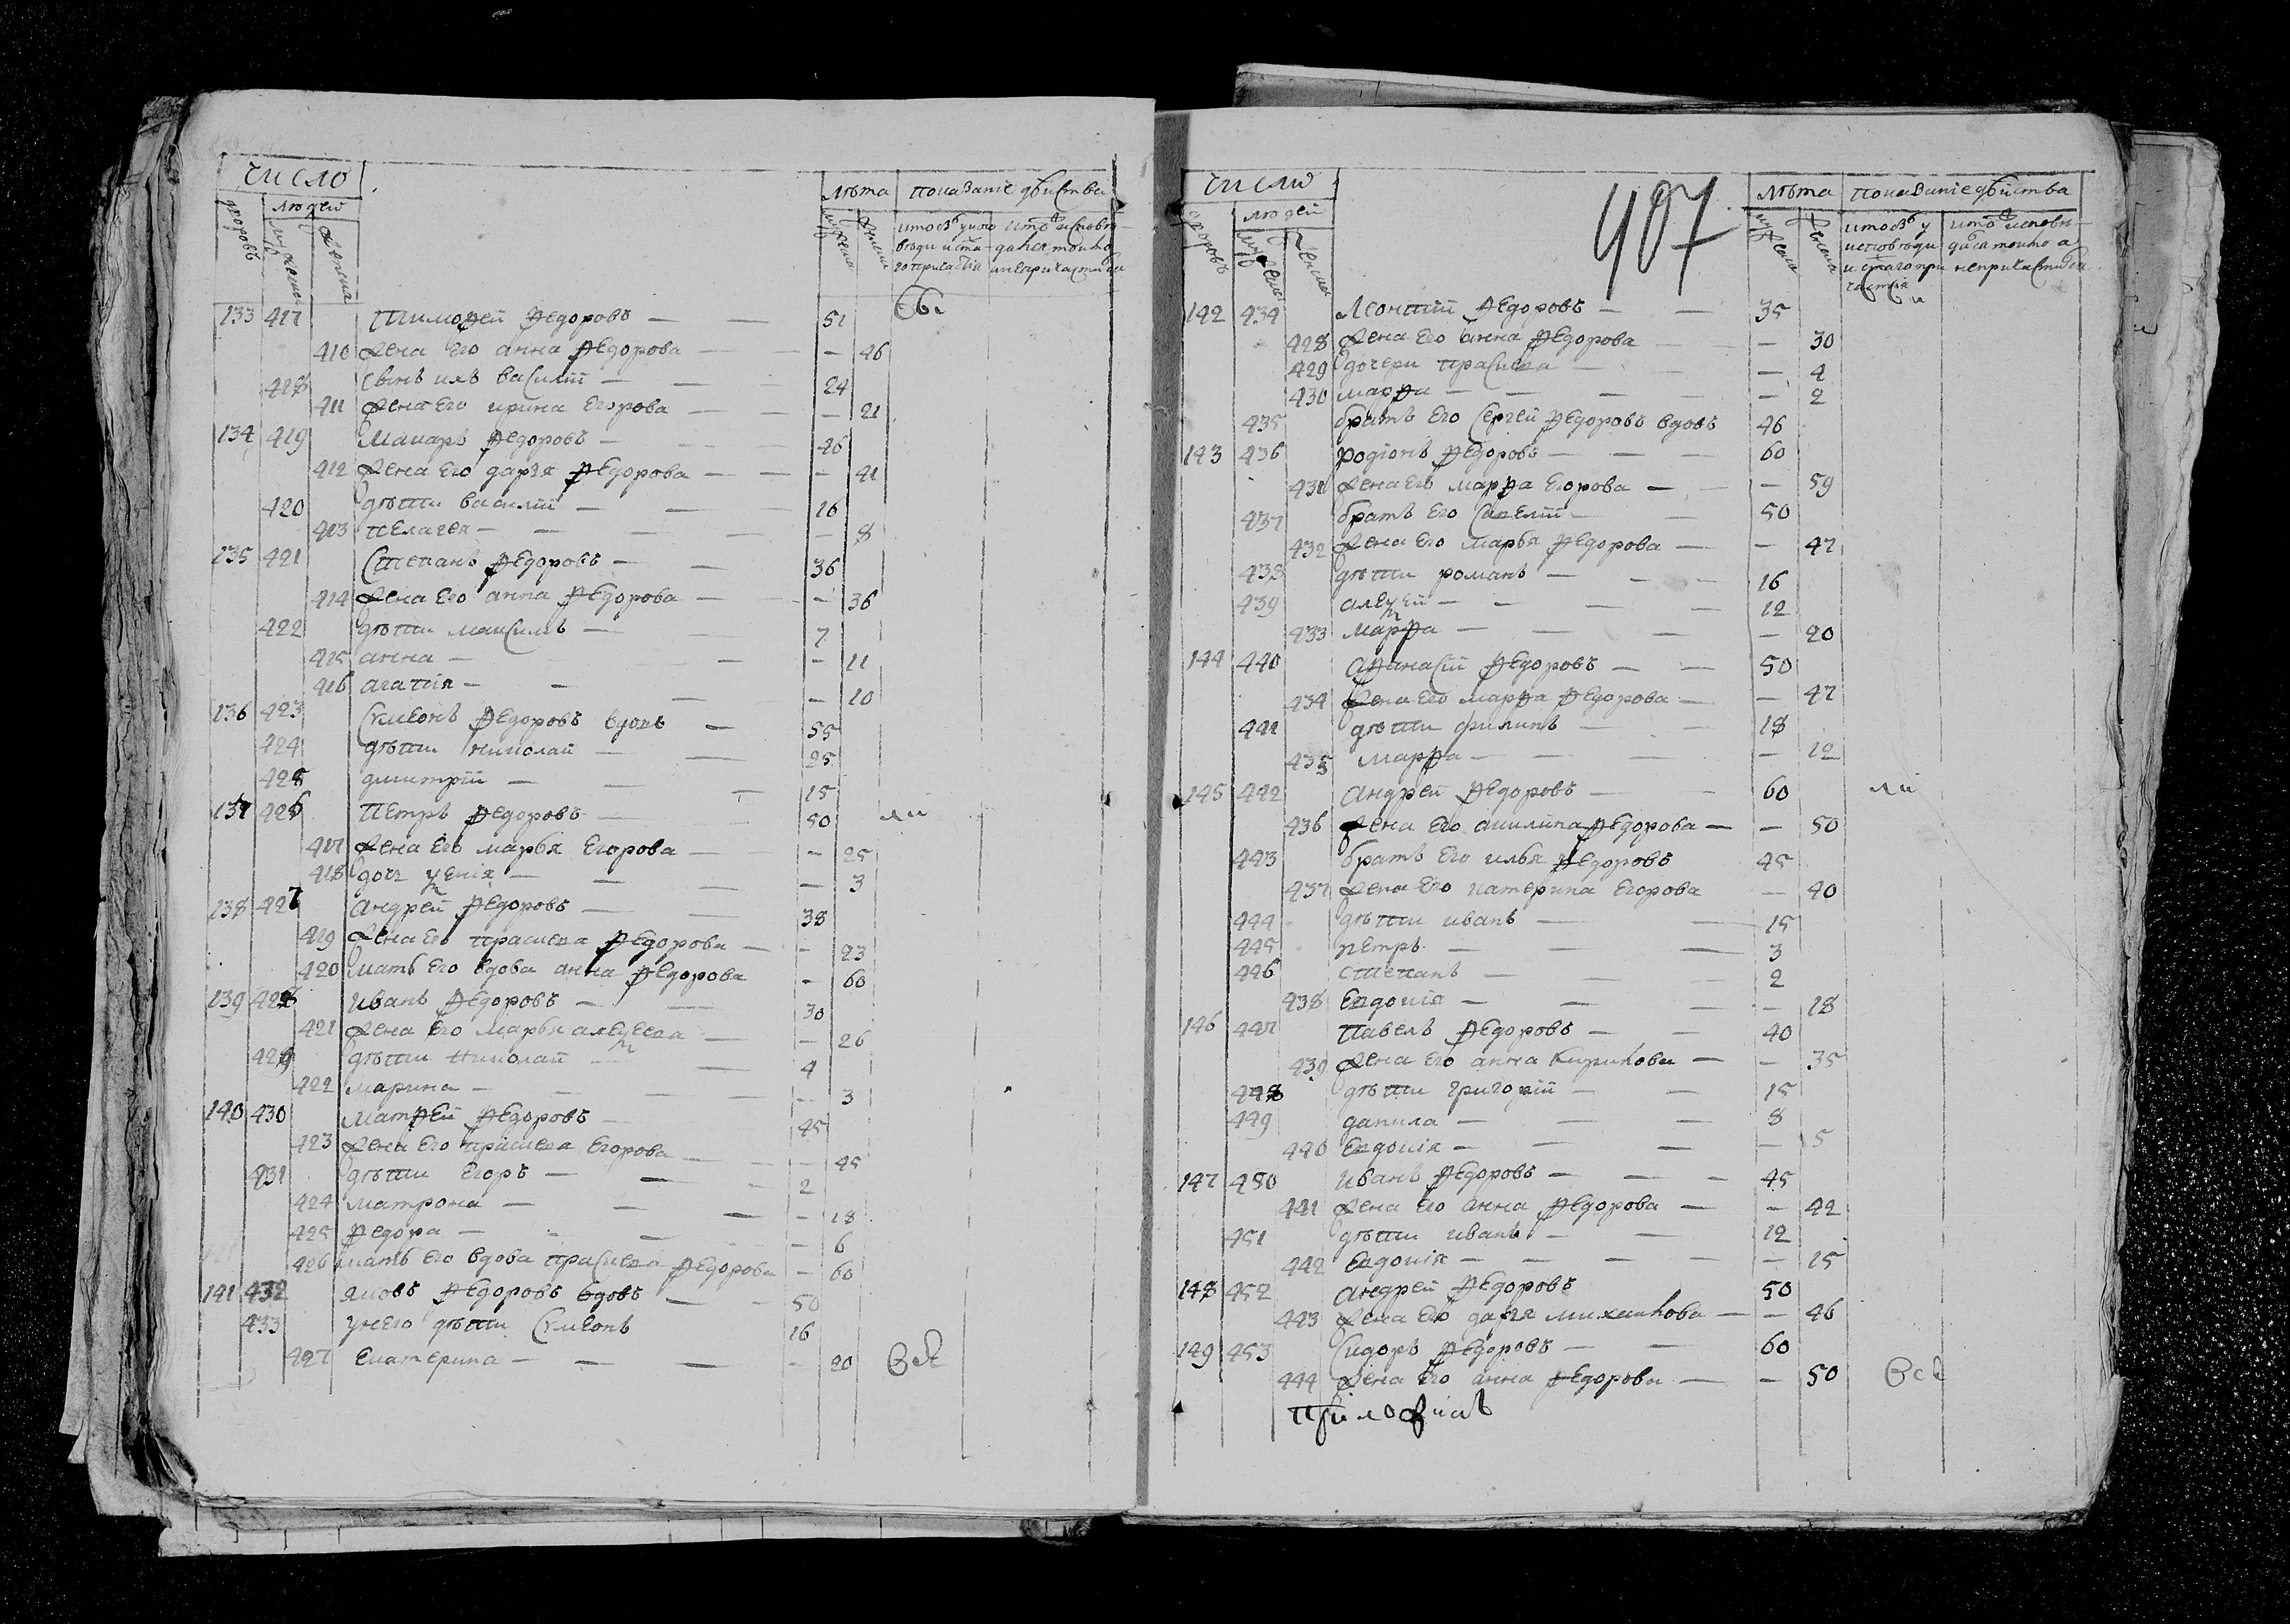 число
людей
дворовъ
мужеска
женска
лѣта
показаніе дѣйства
мужеска
женска
133 417 Тимоѳей Ѳедоровъ — — 51
410 жена Его анна Ѳедорова — — — 46
418 сынъ ихъ василій — — 24
411 жена Его ирина Егорова — — — 21
134 419 Макаръ Ѳедоровъ — — 46
412 жена Его дарья Ѳедорова — — — 41
420 дѣти василій — — 16
413 пелагея — — — 8
135 421 Степанъ Ѳедоровъ — — 36
414 жена Его анна Ѳедорова — — 36
422 дѣти максимъ — — 7
415 анна — — — 11
416 агапія — — — — 10
136 423 Симеонъ Ѳедоровъ вдовъ — 55
424 дѣти николай — — 25
425 дмитрій — — — 15
137 426 Петръ Ѳедоровъ — — 50
417 жена Его марья Егорова — — — 25
418 дочь — — — 3
138 427 андрей Ѳедоровъ — — 38
419 жена Его прасковья Ѳедорова — — 23
420 мать Его вдова анна Ѳедорова — 60
139 428 иванъ Ѳедоровъ — — 30
421 жена Его марья — — 26
429 дѣти николай — — 4
422 марина — — — — — 3
140 430 матѳей Ѳедоровъ — 45
423 жена Его Егорова — — — 45
431 дѣти Егоръ — — — 2
424 матрона — — — — 18
425 Ѳедора — — — — 6
426 мать Его вдова Ѳедорова — 60
141 432 яковъ Ѳедоровъ вдовъ — — 50
433 унего дѣти Симеонъ 16
427 Екатерина — — — — 20 всѣ
число
людей
дворовъ
мужеска
женска
407
лѣта
показаніе дѣйства
мужеска
женска
142 434 Леонтій Ѳедоровъ — — 35
428 жена Его анна Ѳедорова — — — 30
429 дочери — — — 4
430 марѳа — — — — — 2
435 братъ Его Сергей Ѳедоровъ вдовъ 46
143 436 родіонъ Ѳедоровъ — — — 60
431 жена Его марѳа Егорова — — — 59
437 братъ Его Савелій — — 50
432 жена Его марья Ѳедорова — — 47
438 дѣти романъ — — — 16
439 — — — — 12
433 марѳа — — — — 20
144 440 аѳанасій Ѳедоровъ — — 50
434 жена Его марѳа Ѳедорова — — 47
441 дѣти филипъ — — 18
435 марѳа — — — — 12
145 442 андрей Ѳедоровъ — — 60
436 жена Его акилина Ѳедорова — — 50
443 братъ Его илья Ѳедоровъ 45
437 жена Его катерина Егорова — 40
444 дѣти иванъ — — 15
445 петръ — — — 3
446 степанъ — — 2
438 Евдокія — — — — 18
146 447 Павелъ Ѳедоровъ — — 40
439 жена Его анна — — 35
448 дѣти григорій — — 15
449 данила — — — 8
440 Евдокія — — — — 5
147 450 иванъ Ѳедоровъ — — — 45
441 жена Его анна Ѳедорова — — 42
451 дѣти иванъ — — 12
442 Евдокія — — — — — 15
148 452 андрей Ѳедоровъ 50
443 жена Его дарья михаилова — — 46
149 453 Сидоръ Ѳедоровъ — — 60
444 жена Его анна Ѳедорова — — 50 всѣ